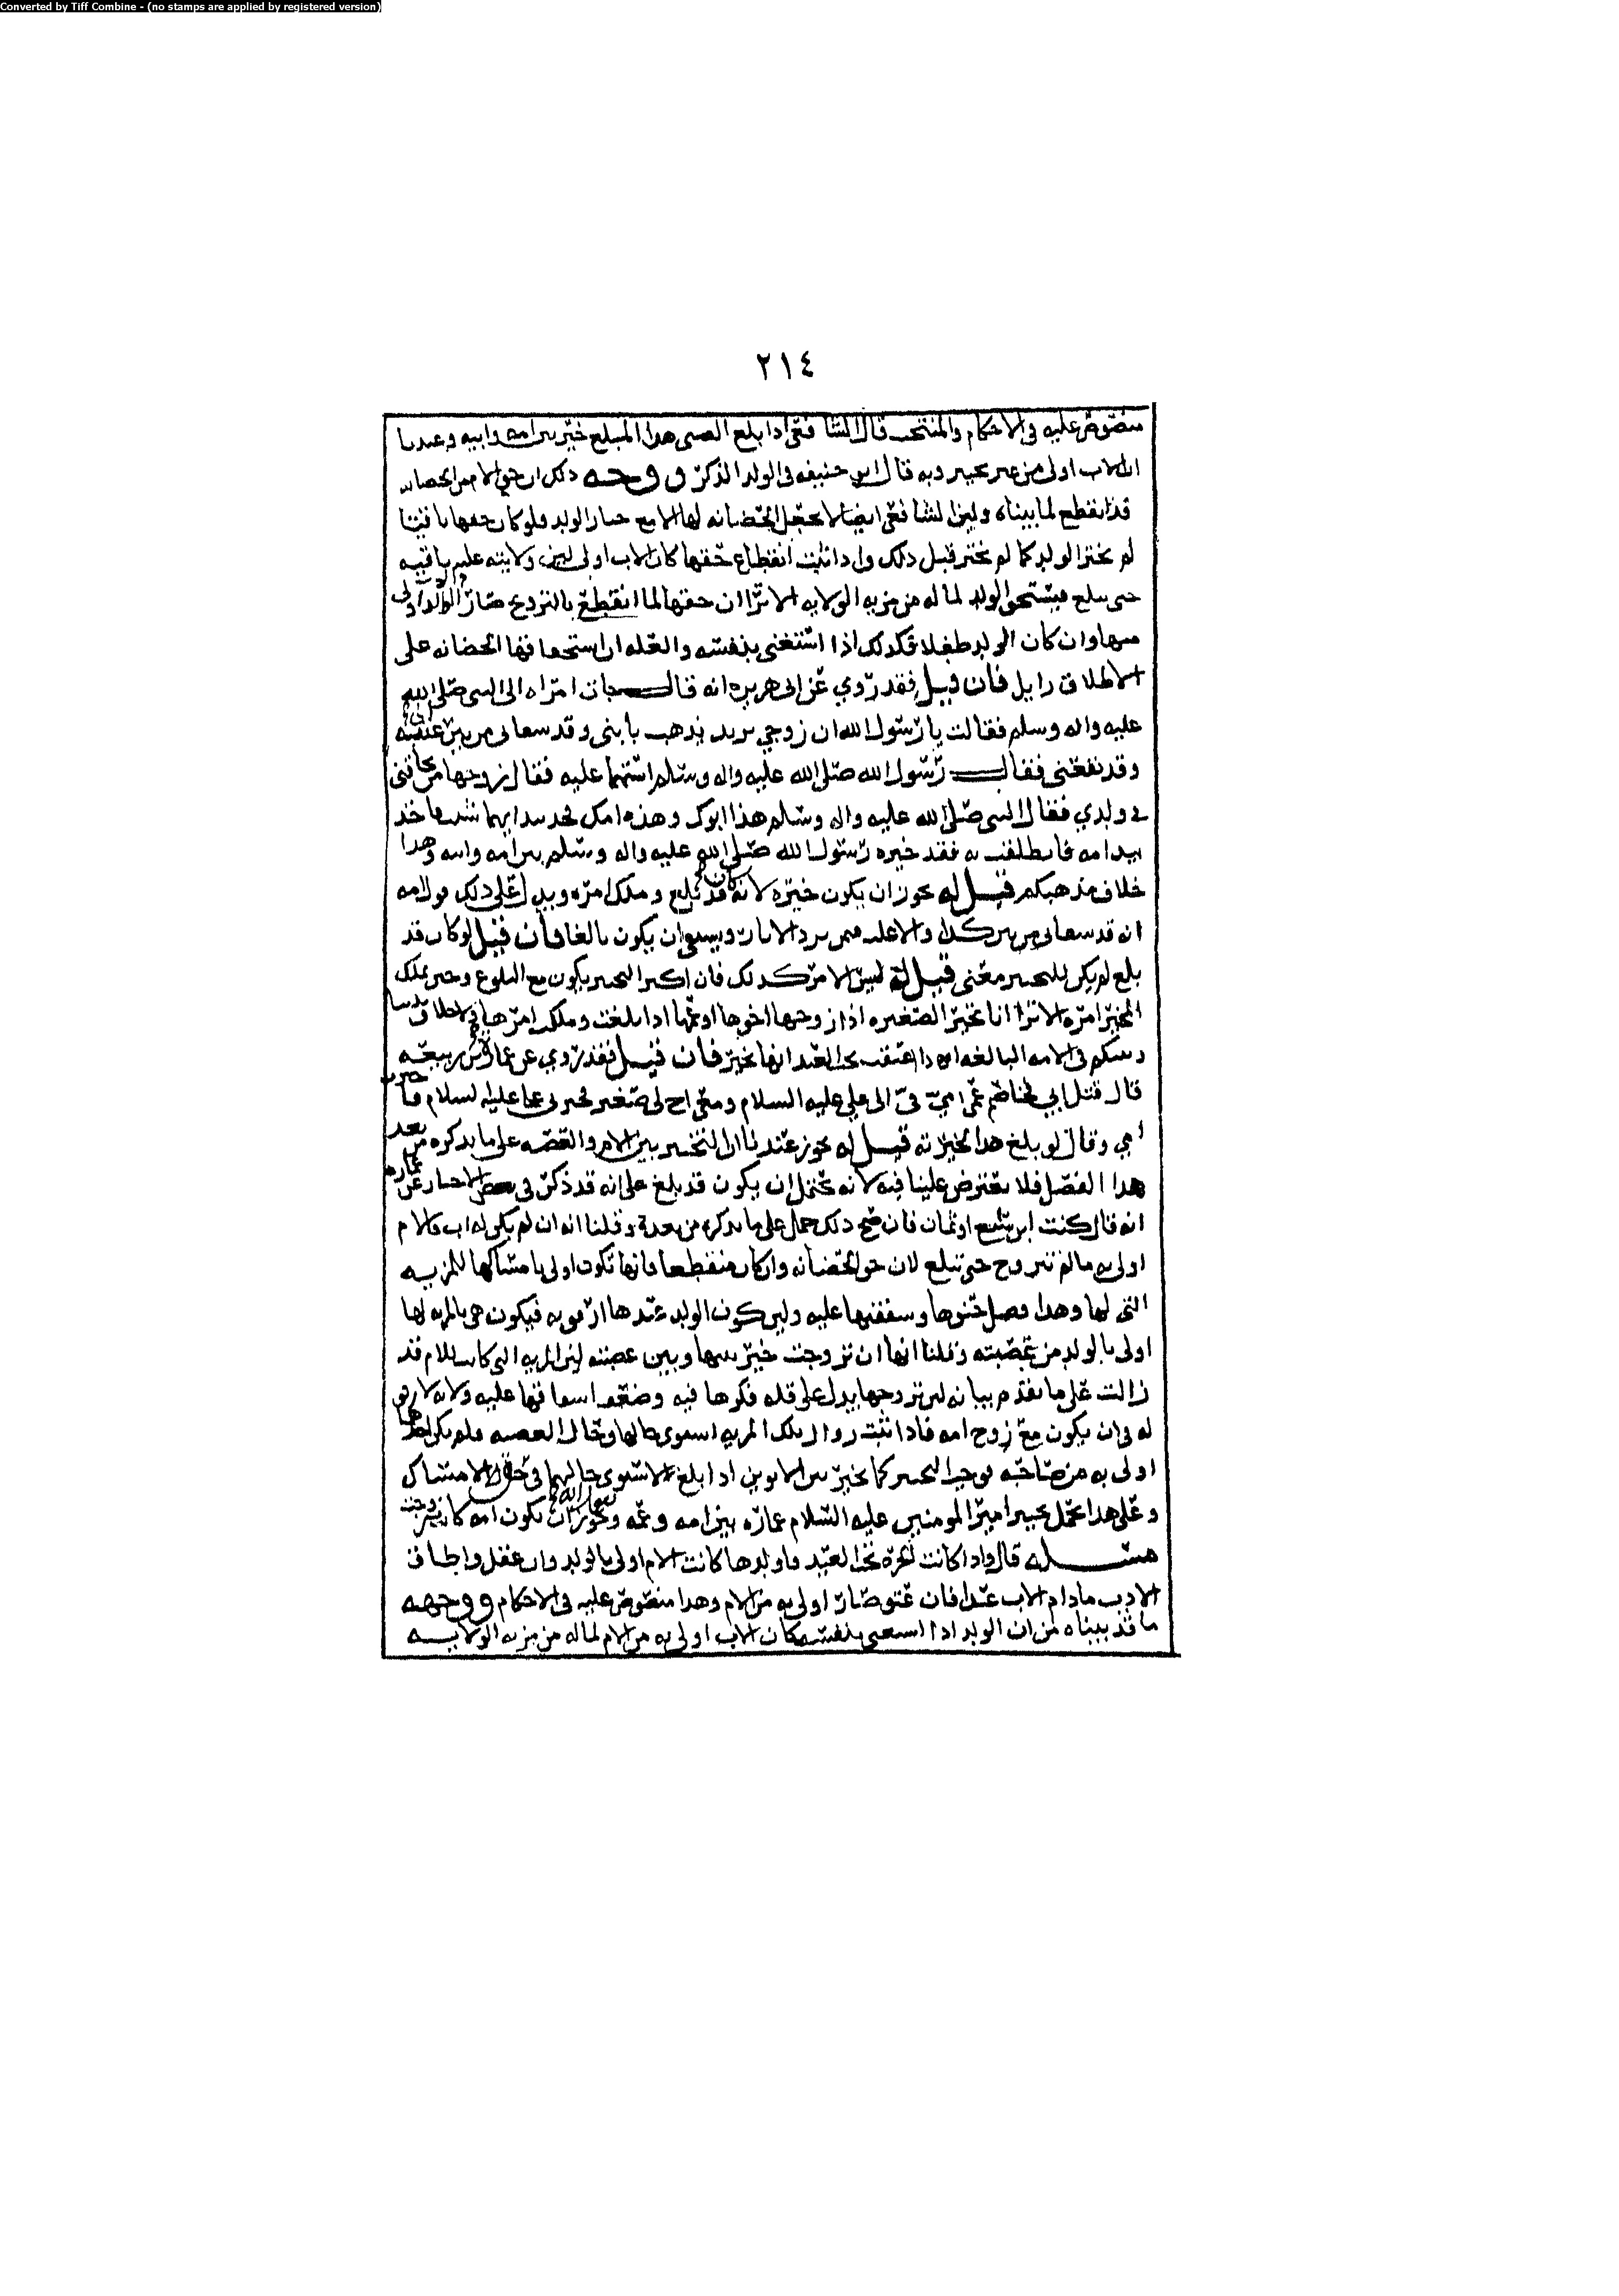 Converted by Tiff Combine - (no stamps are applied by registered version)
٢١٤
منصوص عليه في الاحكام والمنتخب قال الشافعي اذا بلغ الصبي هذا المبلغ خير بين امه وابيه وعندنا
ان الاب اولى من غير تخيير وبه قال ابو حنيفه في الولد الذكر ووجه ذلك ان حق الام من الحضانه
قد انقطع لما بيناه ولان الشافعي ايضا لا يجعل الحضانه لها الا مع خيار الولد ولو كان حقها باقيا
لم يختر الولد كما لم يختر قبل ذلك واذا ثبت انقطاع حقها كان الاب اولى لان ولايته عليه باقيه
حتى يبلغ فيستحق الولد لما له من مزيه الولايه الا ترا ان حقها لما انقطع بالتزوج صار الوالد اولى
منها وان كان الولد طفلا فكذلك اذا استغنى بنفسه والعله ان استحقاقها الحضانه على
الاطلاق زايل فان قيل فقد روي عن ابي هريره انه قال جات امراه الى النبي صلى الله
عليه واله وسلم فقالت يا رسول الله ان زوجي يريد يذهب بابني وقد سقاني من بير ابي عنبه
وقد نفعني فقال رسول الله صلى الله عليه واله وسلم استهما عليه فقال زوجها من يحاقني
في ولدي فقال النبي صلى الله عليه واله وسلم هذا ابوك وهذه امك فخذ بيد ايهما شيت فاخذ
بيد امه فانطلقت به فقد خيره رسول الله صلى الله عليه واله وسلم بين امه وابيه وهذا
خلاف مذهبكم قيل له يجوز ان يكون خيره لانه كان قد بلغ وملك امره ويدل على ذلك قول امه
انه قد سقاني من بير كذا والاغلب فيمن يرد الابار ويستقي ان يكون بالغا فان قيل لو كان قد
بلغ لم يكن للتخيير معنى قيل له ليس الامر كذلك فان اكثر التخيير يكون مع البلوغ وحين يملك
المخير امره الا ترا انا نخير الصغيره اذا زوجها اخوها او عمها اذا بلغت وملكت امرها
في الامه البالغه اذا اعتقت تحت العبد انها تخير فان قيل فقد روي عن عماره بن ربيعه
قال قتل ابي فخاصم عمي امي في الى علي عليه السلام ومعي اخ لي صغير فخيرني علي عليه السلام فاخترت
امي وقال لو بلغ هذا لخيرته قيل له يجوز عندنا التخيير بين الام والعصبه على ما نذكره من بعد
هذا الفصل فلا يعترض علينا فيه لانه يحتمل ان يكون قد بلغ على انه قد ذكر في بعض الاخبار عن عماره
انه قال كنت ابن سبع او ثمان فان صح ذلك حمل على ما نذكره من بعد وقلنا انه ان لم يكن له اب فالام
اولى به ما لم تتزوج حتى تبلغ لان حق الحضانه وان كان منقطعا فانها تكون اولى بامساكها للمزيه
التي لها وهذا فضل حنوها وشفقتها عليه ولان كون الولد عندها ارفق به فيكون هي بالمزيه لها
اولى بالولد من عصبته وقلنا انها ان تزوجت خير بينها وبين عصبته لان المزيه التي كانت للام قد
زالت على ما تقدم بيانه لان تزوجها يدل على قله فكرها فيه وضعف اشفاقها عليه ولانه لا رفق
له في ان يكون مع زوج امه فاذا ثبت زوال تلك المزيه استوى حالها وحال العصبه فلم يكن احدهما
اولى به من صاحبه فوجب التخيير كما نخير بين الابوين اذا بلغ لاستوى حاليهما في حق الامساك
وعلى هذا يحمل تخيير امير المومنين عليه السلام عماره بين امه وعمه ويجوز ان تكون امه كانت تزوجت
مسئله قال واذا كانت الحره تحت العبد فاولدها كانت الام اولى بالولد وان عقل واطاق
الادب ما دام الاب عبدا فان عتق صار اولى به من الام وهذا منصوص عليه في الاحكام ووجهه
ما قد بيناه من ان الولد اذا استغنى بنفسه كان الاب اولى به من الام لما له من مزيه الولايه